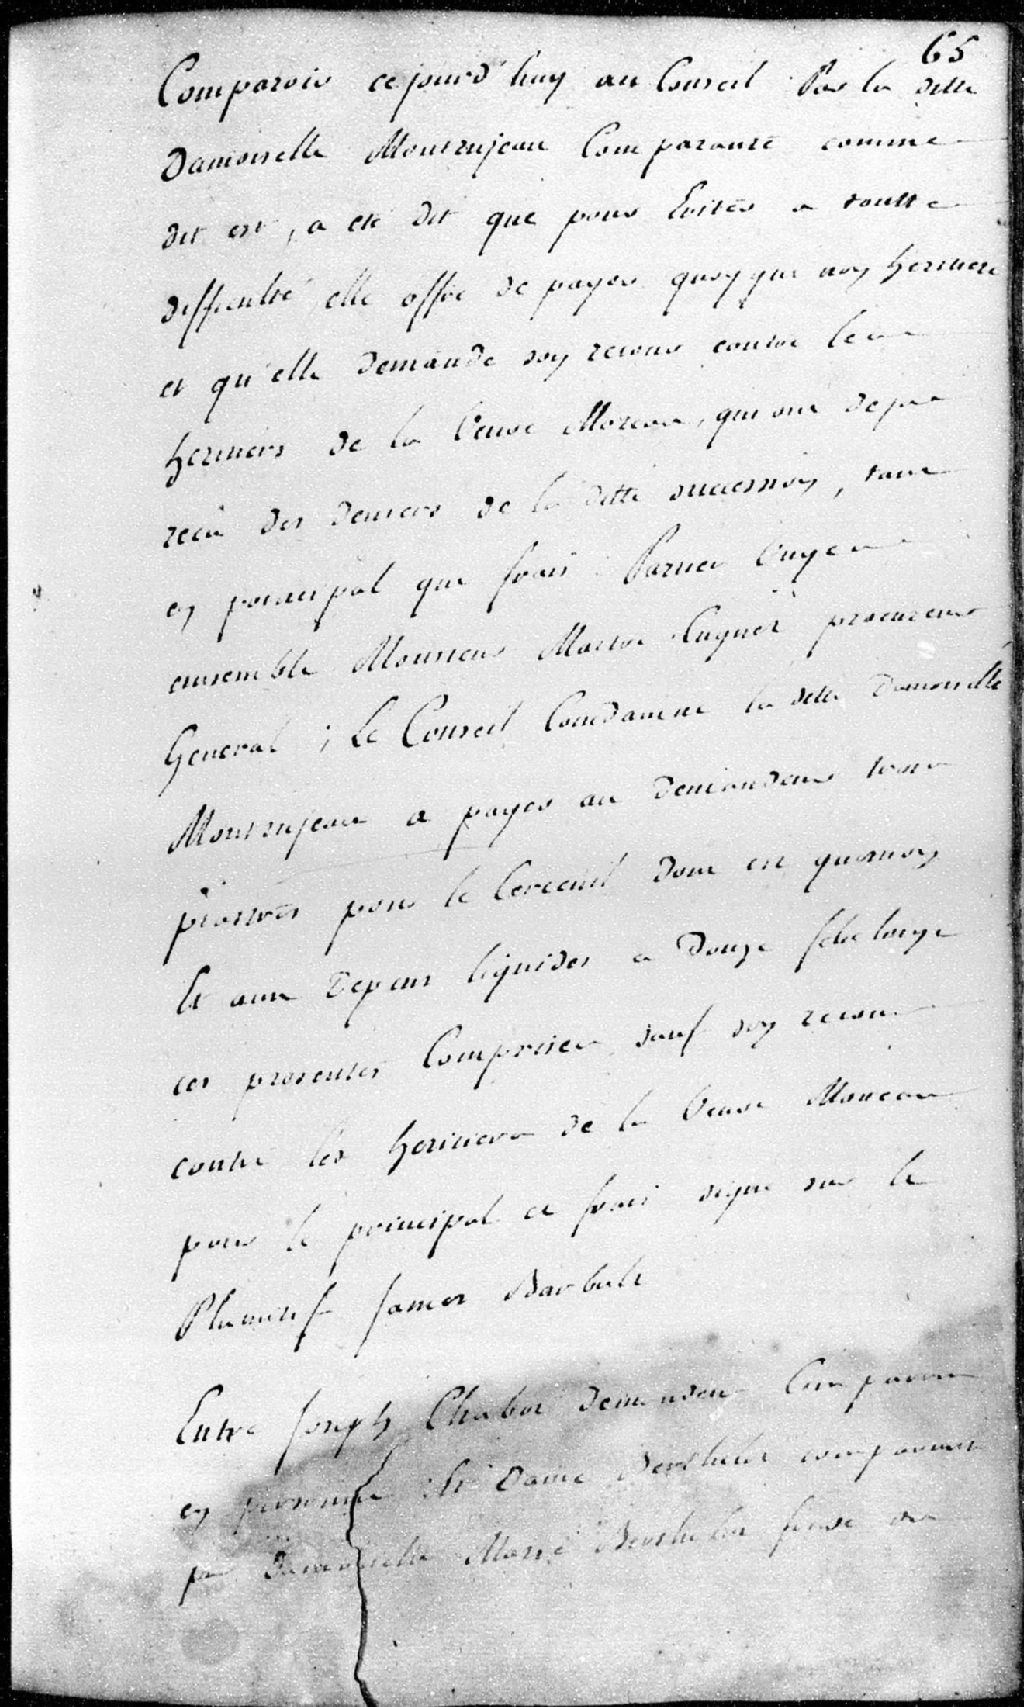 65
Comparoir cejourd'huy au Conseil Par la ditte
Damoiselle Montrujeau Comparante comme
dit est, a eté dit que pour Eviter a toutte
difficulté elle offre de payer quoyque noy heritiere
et qu'elle demande soy recours contre les
heritiers de la Veuve Moreau, qui ont deja
recu des deniers de la ditte successioy, tant
ey principal que frais Parties Ouyes
ensemble Monsieur Maitre Cugnet procureur
General ; Le Conseil Condamne la ditte Damoiselle
Montrujeau a payer au demandeur trois
piastres pour le Cerceuil dont est questioy
Et aux Depens liquidés a Douze schelings
ces presentes Comprises sauf soy recours
contre les heritiers de la Veuve Moreau
pour le principal et frais signé sur le
Plumitif James Barbut
Entre Joseph Chabot demandeur Comparant
ey personne Et Dame Berthelot comparante
par Damoiselle Berthelot